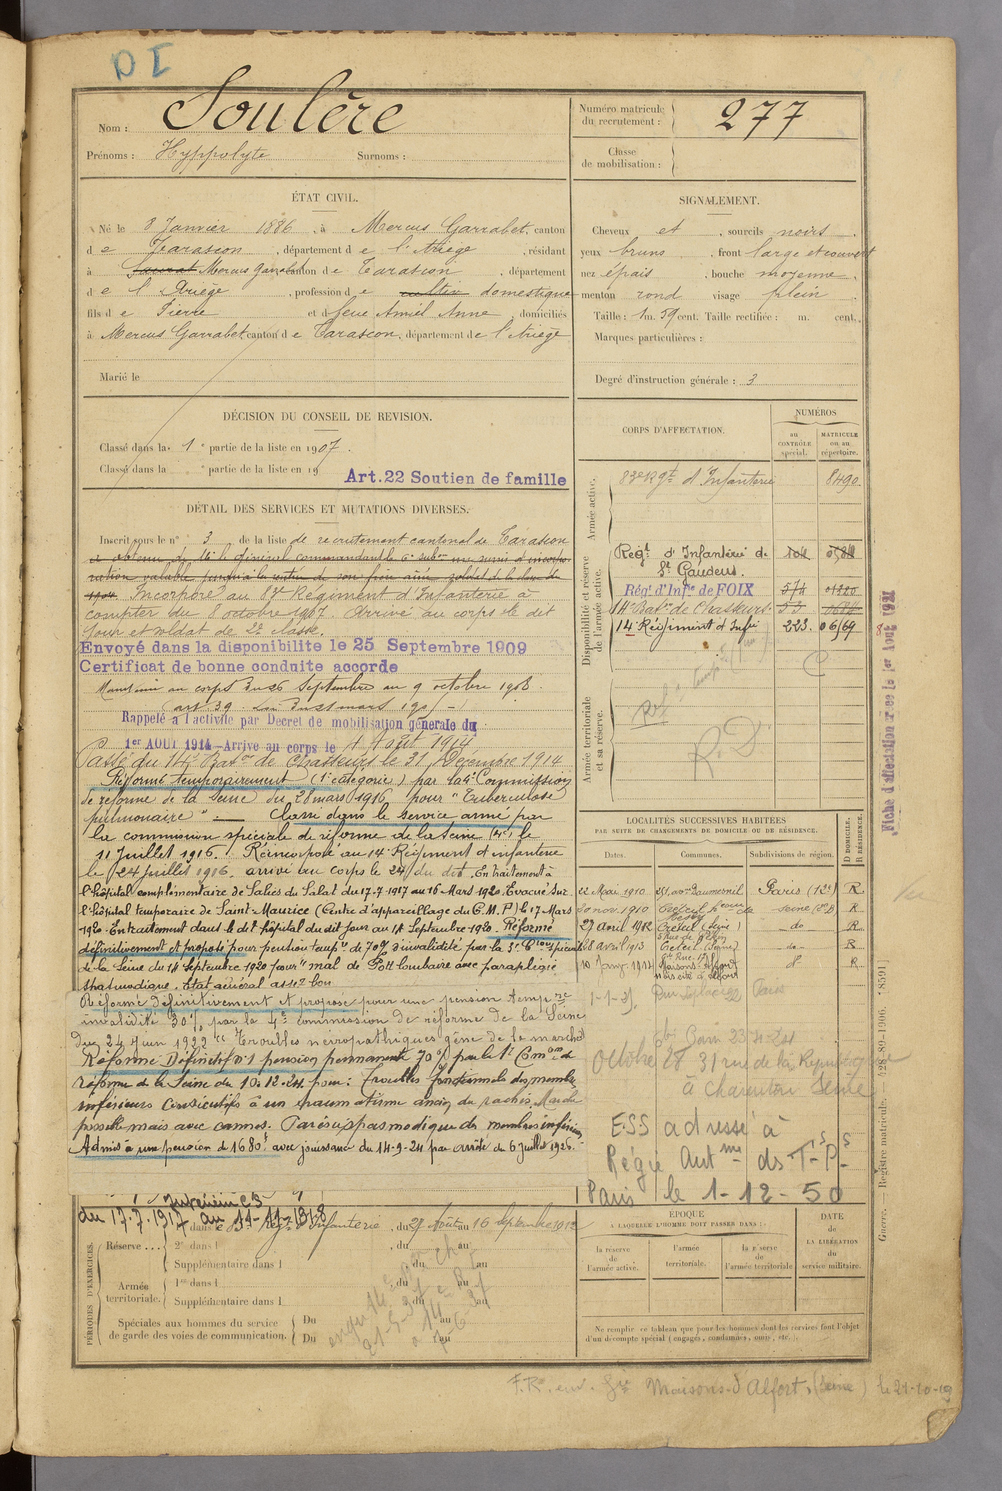 Nom : Soulère
Prénoms : Hyppolyte Surnoms :
Numéro matricule du recrutement : 277
Classe de mobilisation :
ÉTAT CIVIL.
Né le 8 Janvier 1886, à Mercus Garrabet, canton
de Tarascon, département de l'Ariège, résidant
à Mercus Garrabet canton de Tarascon, département
de l'Ariège, profession de domestique
fils de Pierre et de feue Amiel Anne, domiciliés
à Mercus Garrabet, canton de Tarascon, département de l'Ariège
Marié le
SIGNALEMENT.
Cheveux et, sourcils noirs
yeux bruns, front large et couvert
nez épais, bouche moyenne
menton rond visage plein
Taille : 1 m. 59 cent. Taille rectifiée : m. cent.
Marques particulières :
Degré d'instruction générale : 3
DÉCISION DU CONSEIL DE REVISION.
Classé dans la 1e partie de la liste en 1907.
Classé dans la e partie de la liste en 19
Art.22 Soutien de famille
DÉTAIL DES SERVICES ET MUTATIONS DIVERSES.
Inscrit sous le n° 3 de la liste de recrutement cantonal de Tarascon
Incorporé au 83e Régiment d'Infanterie à
compter du 8 octobre 1907. Arrivé au corps le dit
jour et soldat de 2e classe.
Envoyé dans la disponibilité le 25 Septembre 1909
Certificat de bonne conduite accordé
Maintenu au corps du 26 Septembre au 9 octobre 1908.
(art 39. Loi du 21 mars 1905)
Rappelé à l'activité par Decret de mobilisation générale du
1er AOUT 1914 - Arrivé au corps le 4 Août 1914
Passé du 14e Baton de Chasseurs le 21 Décembre 1914
Réformé temporairement (1e catégorie) par la 4e Commission
de réforme de la Seine du 28 mars 1916 pour "Tuberculose
pulmonaire". Classé dans le service armé par
la commission spéciale de réforme de la Seine (4e) le
11 Juillet 1916. Réincorporé au 14e Régiment d'infanterie
le 24 juillet 1916. arrivé au corps le 24 du dit. En traitement à
l'hôpital complémentaire de Salies du Salat du 17.7.1917 au 16 Mars 1920. Evacué sur
l'hôpital temporaire de Saint-Maurice (Centre d'appareillage du G.M.P) le 17 Mars
1920. En traitement dans le dit hôpital du dit jour au 14 Septembre 1920. Réformé
définitivement et proposé pour pension tempre de 70% d'invalidité par la 3e Cion spéciale
de la Seine du 14 Septembre 1920 pour "mal de Pott lombaire avec paraplégie
spasmodique. état général assez bon
Réformé définitivement et proposé pour une pension tempre
invalidité 30% par la 4e commission de réforme de la Seine
du 24 juin 1922 "Troubles névropathiques gêne de la marche"
Réformé Définitif n°1 pension permanente 70% par la 1e Comon de
réforme de la Seine du 10-12-24 pour : Troubles fonctionnels des membres
inférieurs consécutifs à un traumatisme ancien du rachis. Marche
possible mais avec cannes. Parésie spasmodique des membres inférieurs
Admis à une pension de 1680f avec jouissance du 14-9-24 par arrêté du 6 juillet 1926.
CORPS D'AFFECTATION.
NUMÉROS
au CONTRÔLE spécial.
MATRICULE ou au répertoire.
Armée active.
83e Rgt d'Infanterie 8490
Disponibilité et réserve de l'armée active.
Regt d'Infanterie de St Gaudens.
Rég. d'Infie de FOIX 574 01220
14e Baton de Chasseurs
14 Régiment d'Infie 223. 06169
Armée territoriale et sa réserve.
R.D.
Fiche d'affectation créée le 1er Août 1921
LOCALITÉS SUCCESSIVES HABITÉES
PAR SUITE DE CHANGEMENTS DE DOMICILE OU DE RÉSIDENCE.
Dates. Communes. Subdivisions de région. D DOMICILE. R RÉSIDENCE.
22 Mai 1910 Daumesnil Paris (12e) R
20 nov. 1910 Créteil Seine R
27 avril 1912 Créteil (Seine) do R
28 avril 1913 Créteil (Seine) do R
10 Janv. 1914 Maisons-Alfort do R
Paris
Octobre 28 31 rue de la République
à Charenton Seine
ESS adressé à
Régie Autme des T-Ps-Ps
Paris le 1-12-50
PÉRIODES D'EXERCICES.
Intérieur CS
du 17.7.1917 au 11-11-1918
Réserve... 1re dans le 83e Régt d'Infanterie, du 27 Août au 16 Septembre 1912
2e dans l , du au
Supplémentaire dans l , du au
Armée territoriale. 1re dans l , du au
Supplémentaire dans l , du au
Spéciales aux hommes du service de garde des voies de communication. Du au
Du au
ÉPOQUE
À LAQUELLE L'HOMME DOIT PASSER DANS :
la réserve de l'armée active.
l'armée territoriale.
la réserve de l'armée territoriale
DATE de LA LIBÉRATION du service militaire.
Ne remplir ce tableau que pour les hommes dont les services font l'objet
d'un décompte spécial (engagés, condamnés, omis, etc.).
Guerre. — Registre matricule.
Maisons-d'Alfort (Seine) le 21-10-19